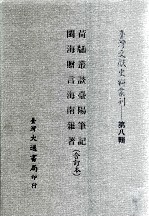 臺灣文獻史料叢刊 第八輯
荷牐叢談臺陽筆記
閩海贈言海南雜著
(合訂本)
臺灣大通書局印行